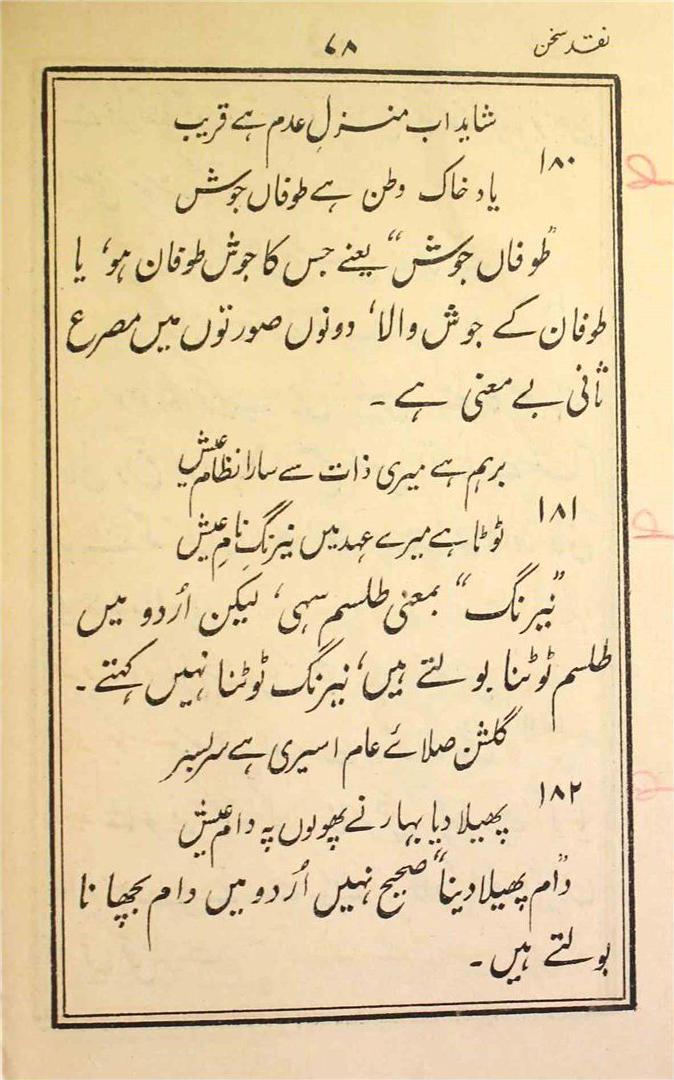 نقد سخن
۷۸
شاید اب منزلِ عدم ہے قریب
۱۸۰
یاد خاک وطن ہے طوفاں جوش
”طوفاں جوش“ یعنے جس کا جوش طوفان ہو، یا
طوفان کے جوش والا، دونوں صورتوں میں مصرع
ثانی بے معنی ہے۔
برہم ہے میری ذات سے سارا نظامِ عیش
۱۸۱
ٹوٹا ہے میرے عہد میں نیرنگِ نامِ عیش
”نیرنگ“ بمعنی طلسم سہی، لیکن اُردو میں
طلسم ٹوٹنا بولتے ہیں، نیرنگ ٹوٹنا نہیں کہتے۔
گلشن صلائے عام اسیری ہے سربسر
۱۸۲
پھیلا دیا بہار نے پھولوں پہ دام عیش
”دام پھیلا دینا“ صحیح نہیں اُردو میں دام بچھانا
بولتے ہیں۔